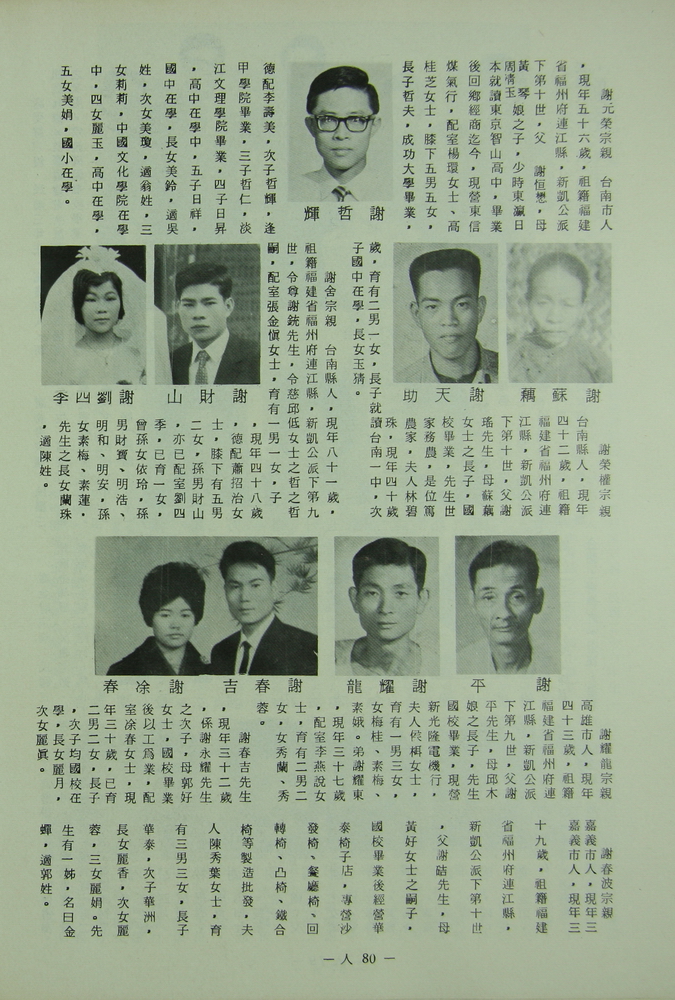 謝元榮宗親　台南市人
，現年五十六歲，祖籍福建
省福州府連江縣，新凱公派
下第十世，父　謝恒懋，母
黃　琴
周淸玉娘之子，少時東瀛日
本就讀東京智山高中，畢業
後回鄉經商迄今，現營東信
煤氣行，配室楊環女士、高
桂芝女士，膝下五男五女，
長子哲夫，成功大學畢業，
謝哲輝
德配李壽美，次子哲輝，逢
甲學院畢業，三子哲仁，淡
江文理學院畢業，四子日昇
，高中在學中，五子日祥，
國中在學，長女美鈴，適吳
姓，次女美瓊，適翁姓，三
女莉莉，中國文化學院在學
中，四女麗玉，高中在學，
五女美娟，國小在學。
謝蘇藕
謝天助
謝財山
謝劉四李
謝榮權宗親
台南縣人，現年
四十二歲，祖籍
福建省福州府連
江縣，新凱公派
下第十世，父謝
瑤先生，母蘇藕
女士之長子，國
校畢業，先生世
家務農，是位篤
農家，夫人林碧
珠，現年四十歲
歲，育有二男一女，長子就讀台南一中，次
子國中在學，長女玉猜。
謝舍宗親　台南縣人，現年八十一歲，
祖籍福建省福州府連江縣，新凱公派下第九
世，令尊謝銃先生，令慈邱低女士之哲之哲
嗣，配室張金愼女士，育有一男一女，子
，現年四十八歲
，德配蕭招治女
士，膝下有五男
二女，孫男財山
，亦已配室劉四
季，已育一女，
曾孫女依玲，孫
男財寶、明浩、
明和、明安，孫
女素梅、素蓮，
先生之長女蘭珠
，適陳姓。
謝平
謝耀龍
謝春吉
謝凃春
謝耀龍宗親
高雄市人，現年
四十三歲，祖籍
福建省福州府連
江縣，新凱公派
下第九世，父謝
平先生，母邱木
娘之長子，先生
國校畢業，現營
新光隆電機行，
夫人候棋女士，
育有一男三女，
女梅桂、素梅、
素娥。弟謝耀東
，現年三十七歲
，配室李燕說女
士，育有二男二
女，女秀蘭、秀
蓉。
謝春吉先生
，現年三十二歲
，係謝永耀先生
之次子，母郭好
女士，國校畢業
後以工爲業，配
室凃春女士，現
年三十歲，已育
二男二女，長子
，次子均國校在
學，長女麗月，
次女麗眞。
謝春波宗親
嘉義市人，現年三
嘉義市人，現年三
十九歲，祖籍福建
省福州府連江縣，
新凱公派下第十世
，父謝硈先生，母
黃好女士之嗣子，
國校畢業後經營華
泰椅子店，專營沙
發椅、餐廳椅、回
轉椅、凸椅、鐵合
椅等製造批發，夫
人陳秀葉女士，育
有三男三女，長子
華泰，次子華洲，
長女麗香，次女麗
蓉，三女麗娟。先
生有一姊，名曰金
蟬，適郭姓。
— 人 80 —